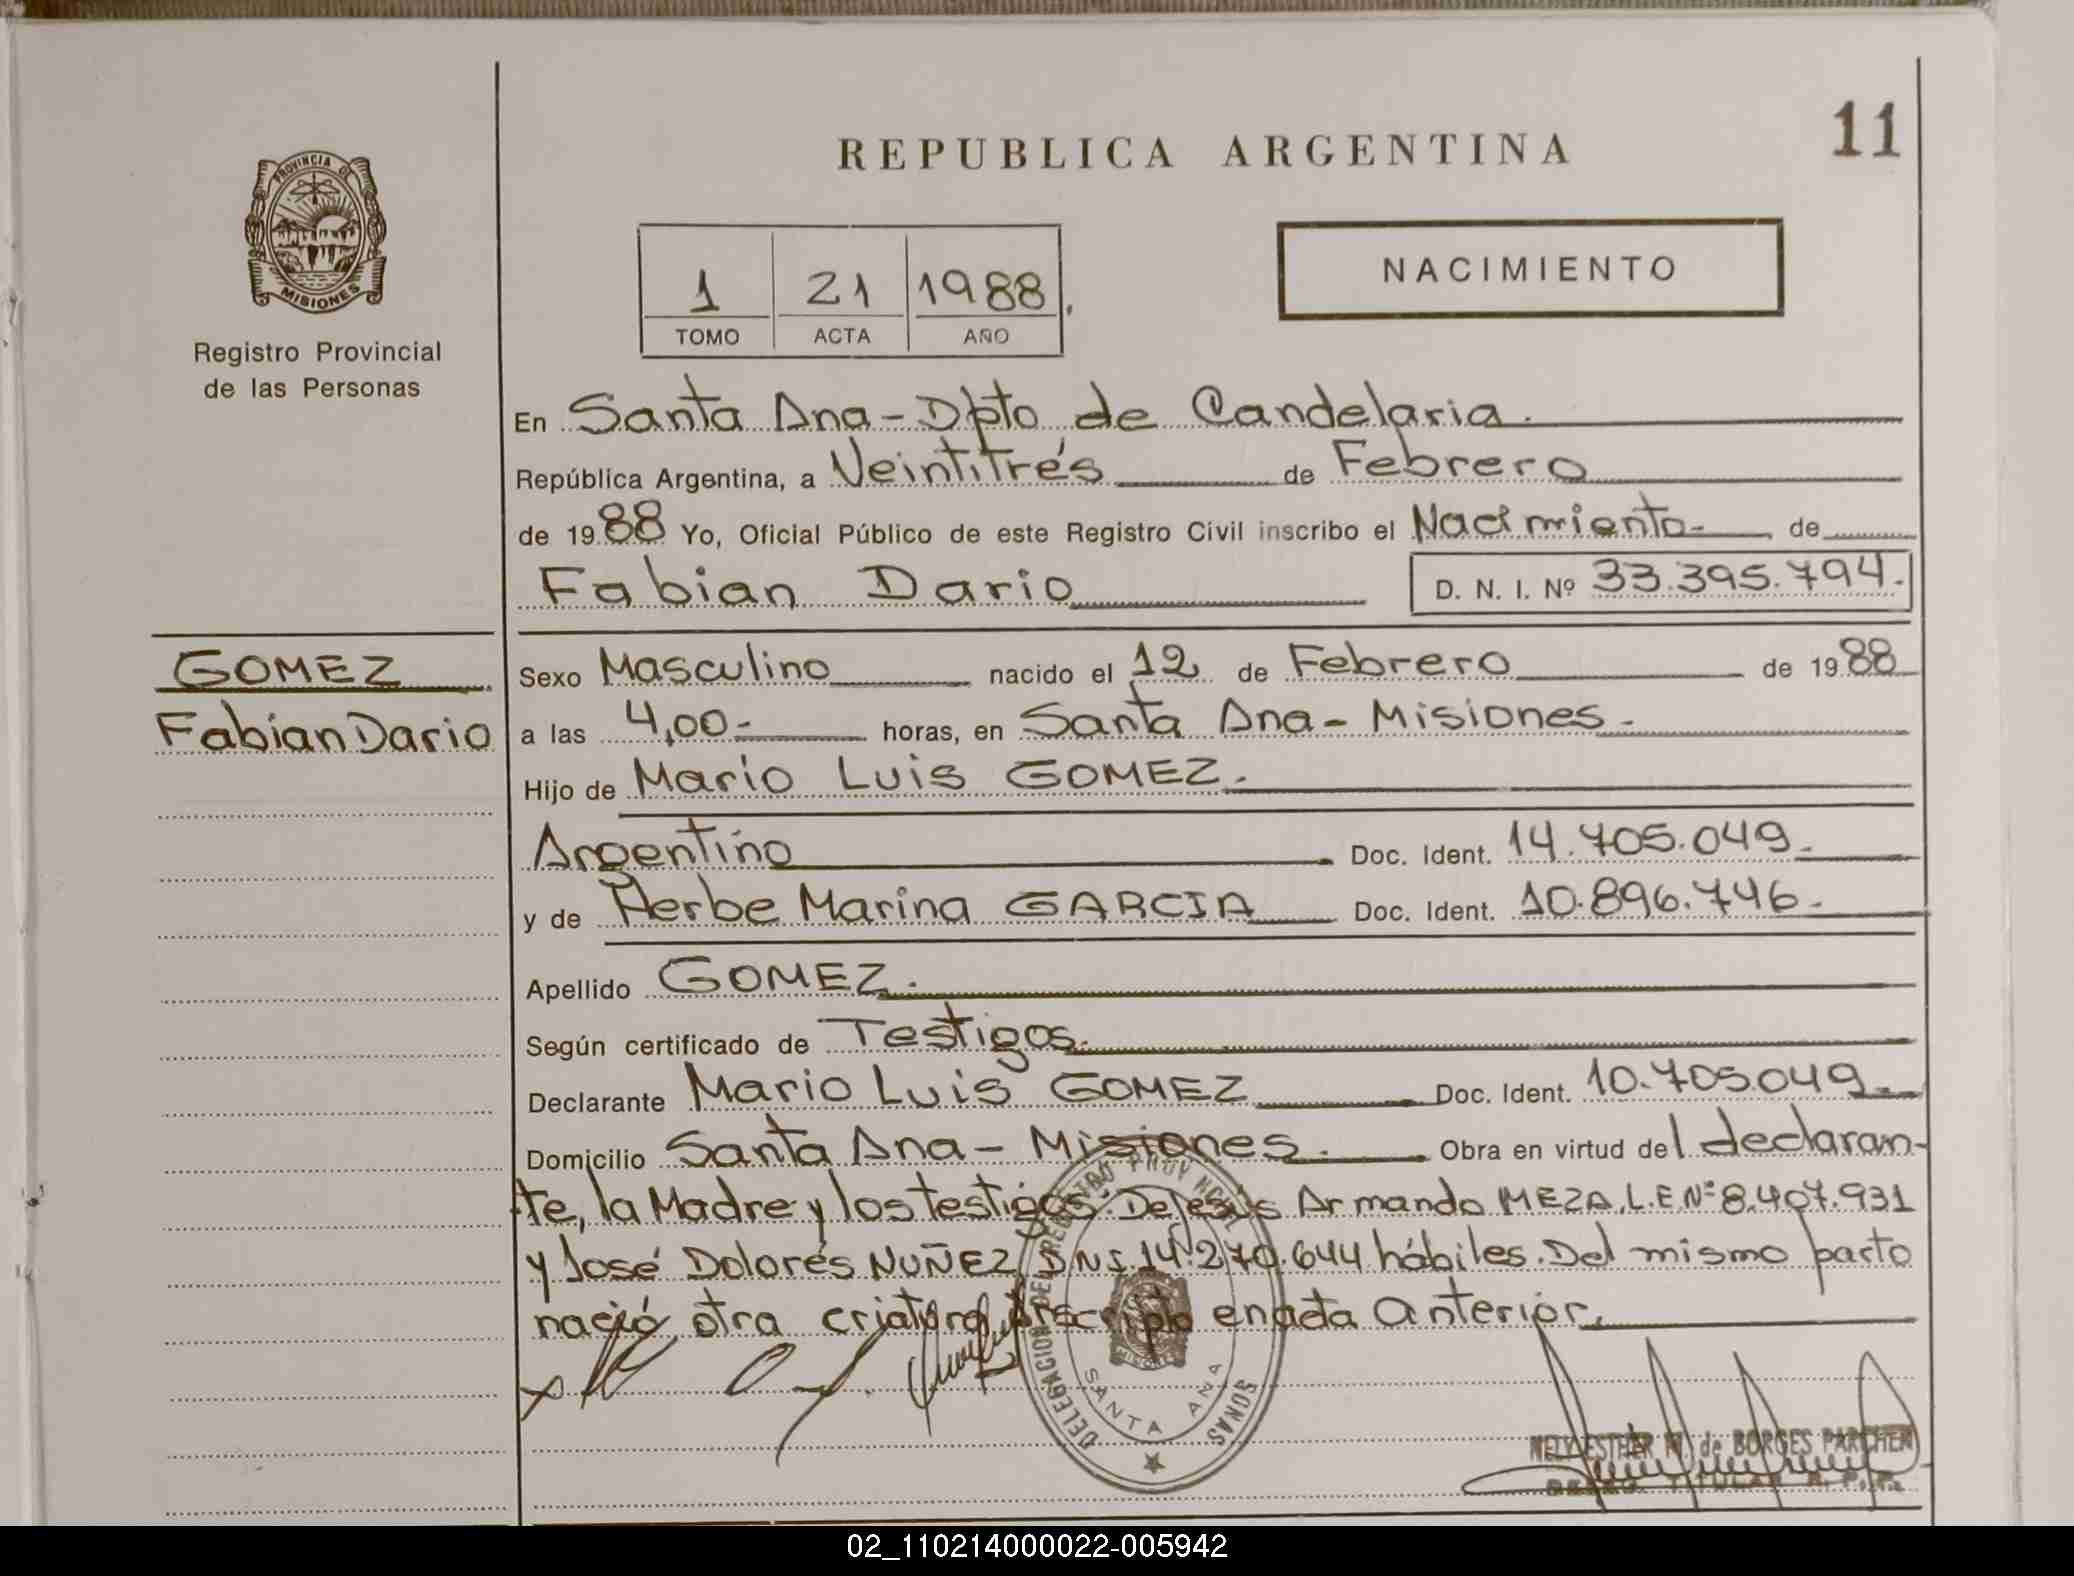 11
REPUBLICA ARGENTINA
PROVINCIA DE
MISIONES
Registro Provincial
de las Personas
NACIMIENTO
1 21 1988
TOMO ACTA AÑO
En Santa Ana - Dpto de Candelaria.
República Argentina, a Veintitrés de Febrero
de 1988 Yo, Oficial Público de este Registro Civil inscribo el Nacimiento- de
Fabian Dario D. N. I. Nº 33.395.794.
GOMEZ
Fabian Dario
Sexo Masculino nacido el 12 de Febrero de 1988
a las 4,00- horas, en Santa Ana - Misiones -
Hijo de Mario Luis GOMEZ.
Argentino Doc. Ident. 14.705.049.
y de Herbe Marina GARCIA Doc. Ident. 10.896.746.
Apellido GOMEZ.
Según certificado de Testigos.
Declarante Mario Luis GOMEZ Doc. Ident. 10.705.049.
Domicilio Santa Ana - Misiones. Obra en virtud del declaran-
te, la Madre y los testigos: Dejesús Armando MEZA, L.E.Nº 8.407.931
y José Dolores NUÑEZ D.N.I. 14.270.644 hábiles. Del mismo parto
nació otra criatura inscripta en acta anterior.
DELEGACION DEL REGISTRO
SANTA ANA
NELY ESTHER M. de BORGES PARCHEN
TITULAR R. P. P.
02_110214000022-005942